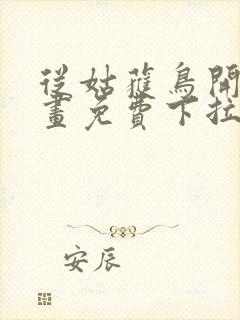 從姑蘿鳥開
畫免費下拉
安辰